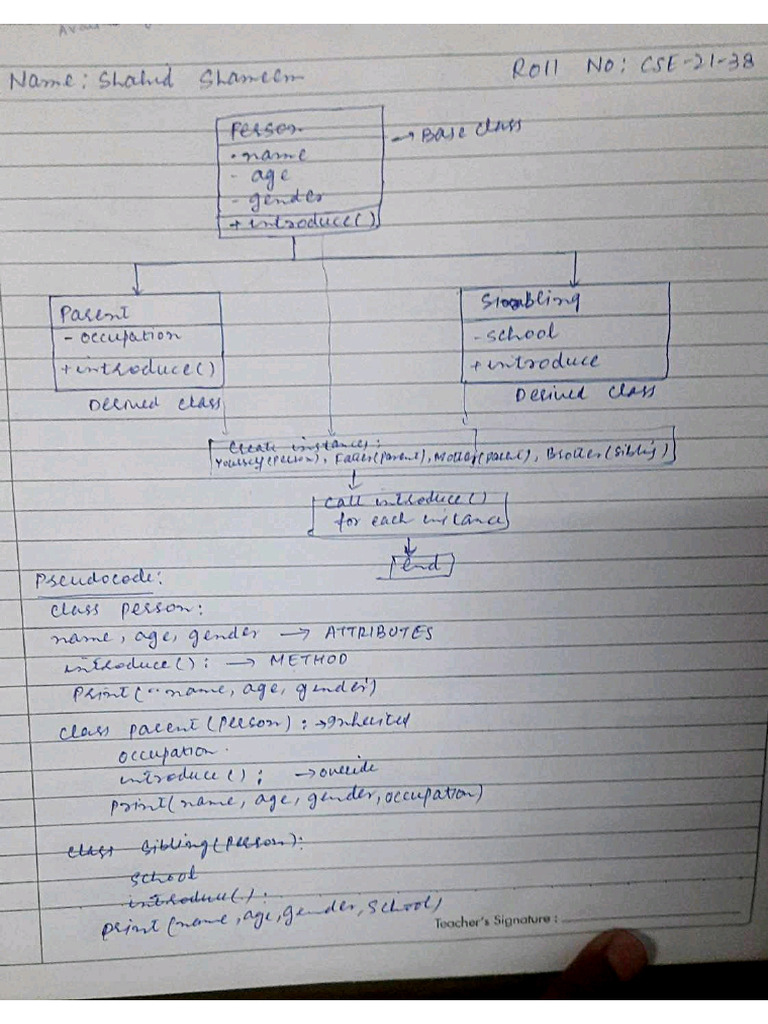 Name: Shahid Shameem
Roll No: CSE-21-38
Person
→ Base class
- name
- age
- gender
+ introduce()
Parent
- occupation
+ introduce()
Derived class
Sibling
- school
+ introduce
Derived class
Create instances:
Yourself(Person), Father(parent), Mother(parent), Brother(Sibling)
Call introduce()
for each instance
end
Pseudocode:
class person:
name, age, gender → ATTRIBUTES
introduce(): → METHOD
print(" name, age, gender)
class parent(person): → inherited
occupation.
introduce(): → override
print(name, age, gender, occupation)
class Sibling(Person):
school
introduce():
print(name, age, gender, school)
Teacher's Signature :